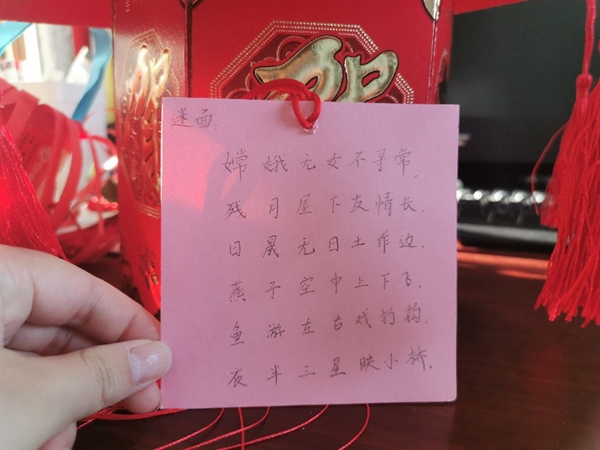 谜面:
嫦娥无女不寻常.
残月星下友情长.
日晟无日土作边.
燕子空中上下飞.
鱼游左右戏钓钩.
夜半三星映小桥.